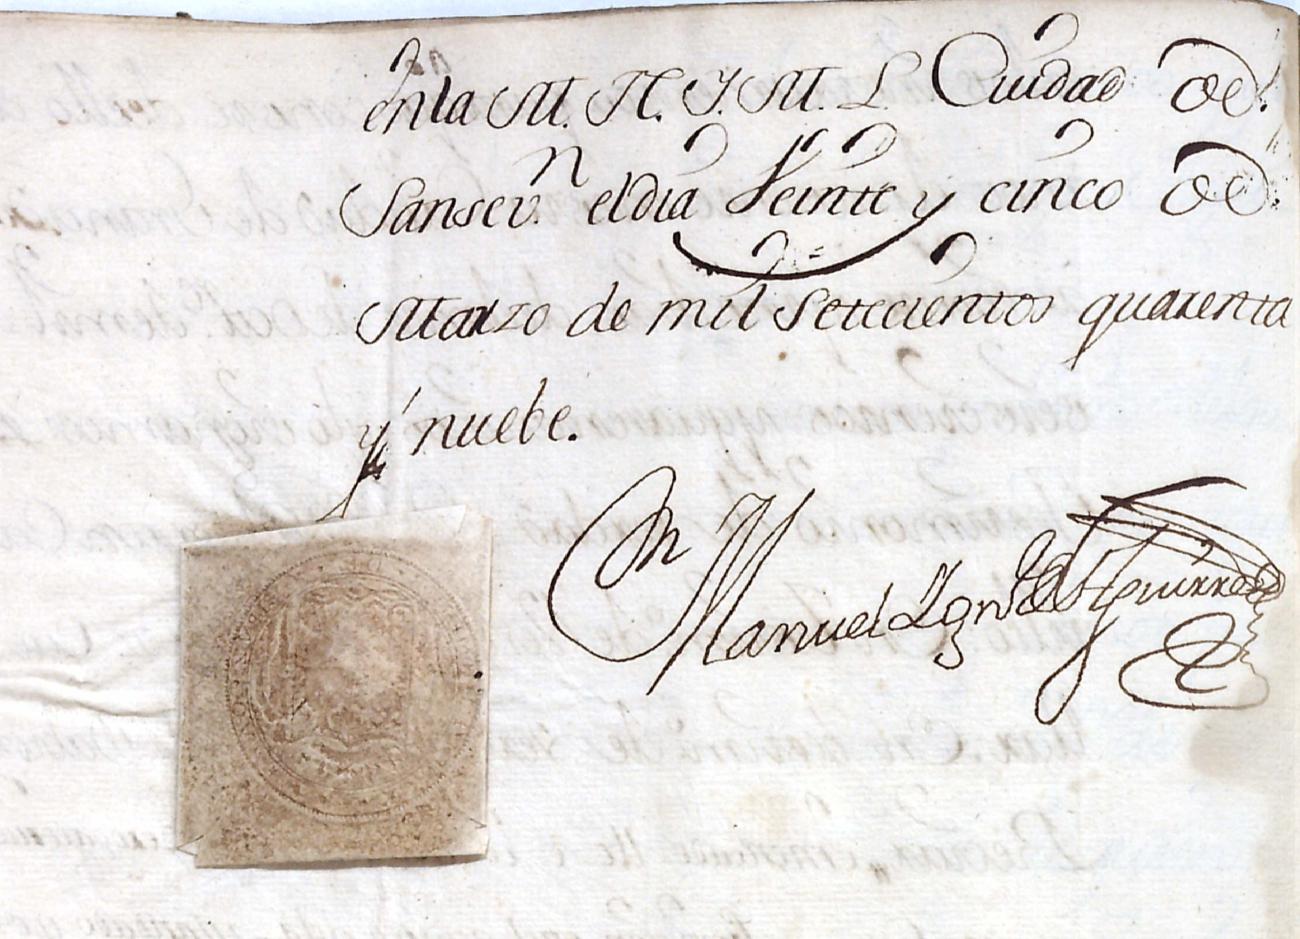 en la M. N. Y. M. L. Ciudad de
San Sev.n el dia Veinte y cinco de
Marzo de mil Settecientos quarenta
y nuebe.
Manuel Ign de Aguirre